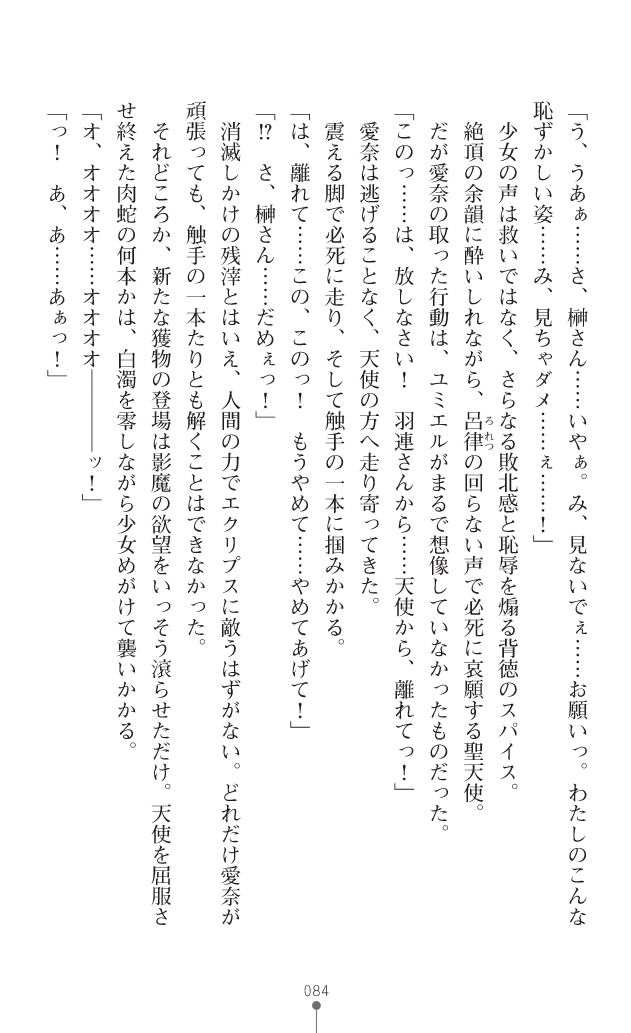 「う、うあぁ……さ、榊さん……いやぁ。み、見ないでぇ……お願いっ。わたしのこんな
恥ずかしい姿……み、見ちゃダメ……ぇ……！」
少女の声は救いではなく、さらなる敗北感と恥辱を煽る背徳のスパイス。
絶頂の余韻に酔いしれながら、呂律の回らない声で必死に哀願する聖天使。
ろれつ
だが愛奈の取った行動は、ユミエルがまるで想像していなかったものだった。
「このっ……は、放しなさい！　羽連さんから……天使から、離れてっ！」
愛奈は逃げることなく、天使の方へ走り寄ってきた。
震える脚で必死に走り、そして触手の一本に掴みかかる。
「は、離れて……この、このっ！　もうやめて……やめてあげて！」
「!?　さ、榊さん……だめぇっ！」
消滅しかけの残滓とはいえ、人間の力でエクリプスに敵うはずがない。どれだけ愛奈が
頑張っても、触手の一本たりとも解くことはできなかった。
それどころか、新たな獲物の登場は影魔の欲望をいっそう滾らせただけ。天使を屈服さ
せ終えた肉蛇の何本かは、白濁を零しながら少女めがけて襲いかかる。
「オ、オオオオ……オオオオ――――ッ！」
「っ！　あ、あ……あぁっ！」
084